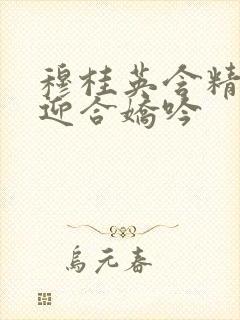 穆桂英含精
迎合娇吟
乌元春